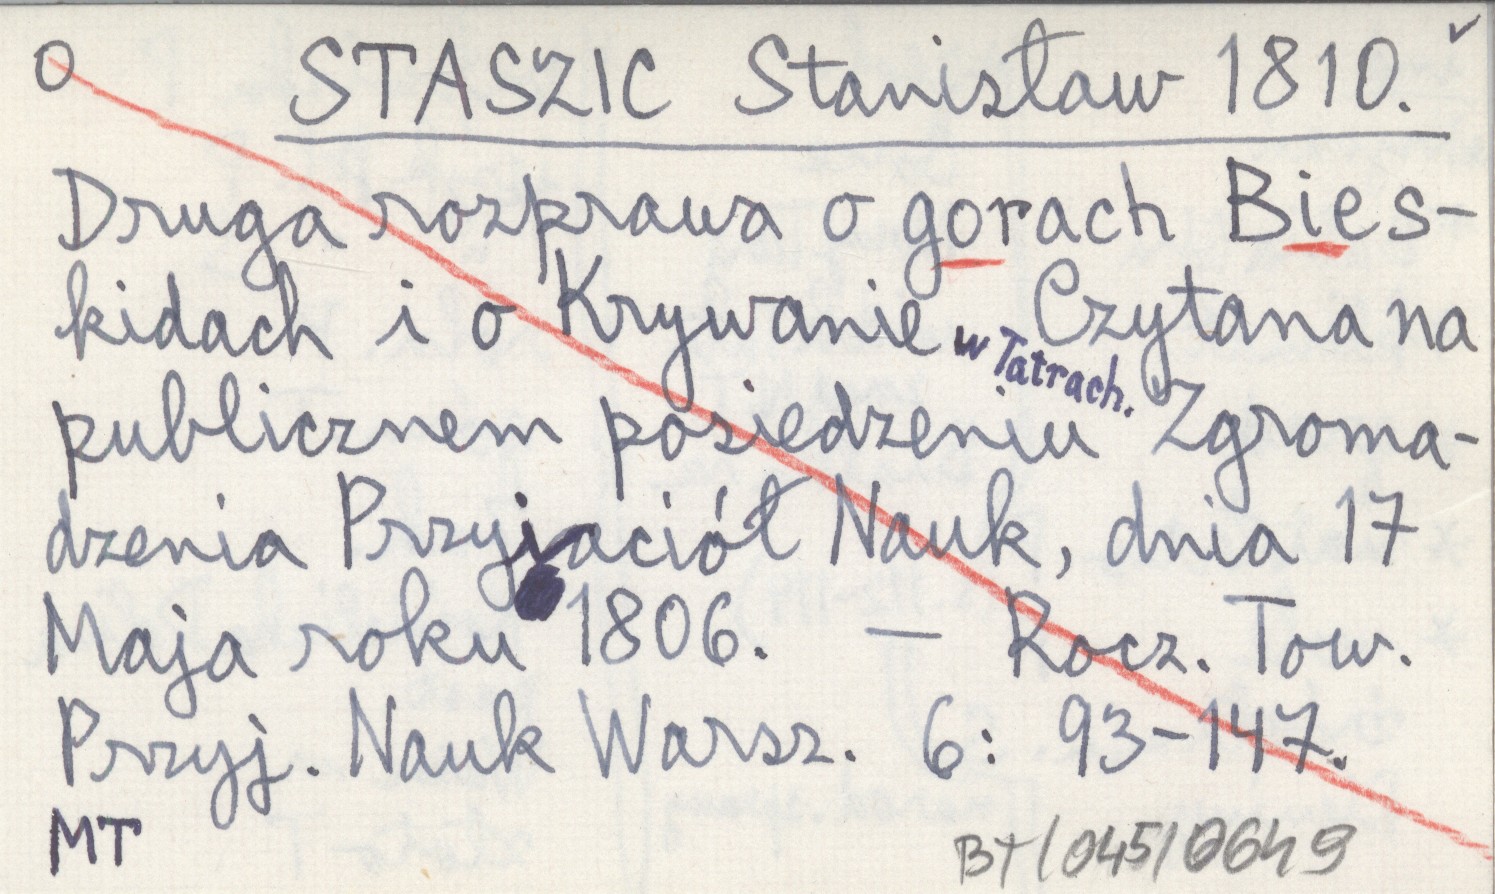 O STASZIC Stanisław 1810.
Druga rozprawa o gorach Bies-
kidach i o Krywanie w Tatrach. Czytana na
publicznem posiedzeniu Zgroma-
dzenia Przyjaciół Nauk, dnia 17
Maja roku 1806. — Rocz. Tow.
Przyj. Nauk Warsz. 6: 93-147.
MT
BT/045/0649